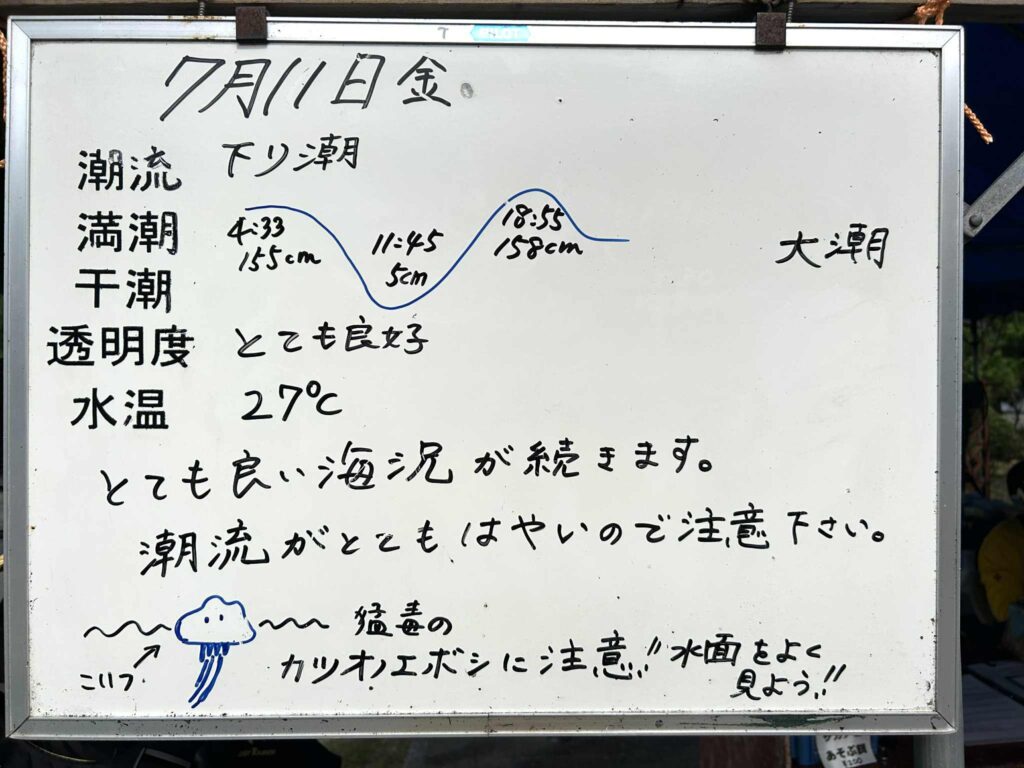 7月11日金
潮流 下り潮
満潮 4:33 155cm 18:55 158cm
大潮
干潮 11:45 5cm
透明度 とても良好
水温 27℃
とても良い海況が続きます。
潮流がとてもはやいので注意下さい。
猛毒の
カツオノエボシに注意!! 水面をよく
見よう!!
こいつ
あそぶ
¥100